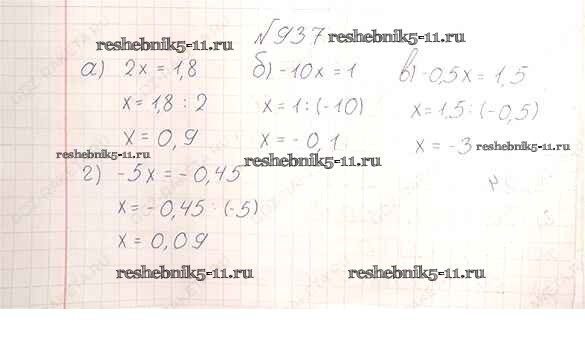 №937
reshebnik5-11.ru reshebnik5-11.ru
а) 2x = 1,8
x = 1,8 : 2
x = 0,9
б) -10x = 1
x = 1 : (-10)
x = -0,1
в) -0,5x = 1,5
x = 1,5 : (-0,5)
x = -3
reshebnik5-11.ru reshebnik5-11.ru reshebnik5-11.ru
г) -5x = -0,45
x = -0,45 : (-5)
x = 0,09
reshebnik5-11.ru reshebnik5-11.ru